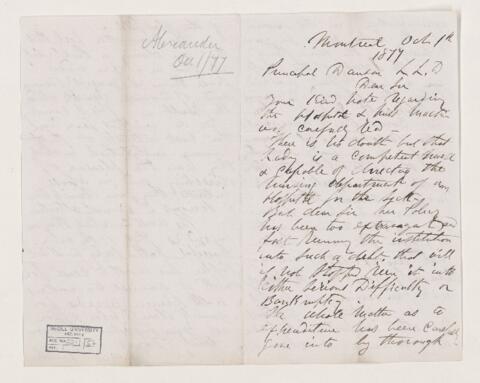 Alexander
Oct 1/77
Montreal Oct 1st
1877
Principal Dawson L.L.D
Dear Sir
Your kind note regarding
the Hospital & Miss Mach
was carefully read -
There is no doubt but that
Lady is a competent nurse
& capable of directing the
Nursing department of any
Hospital for the Sick -
But dear Sir her Policy
has been too extravagant and
fast running the institution
into such a debt that will
if not stopped run it into
either serious Difficulty or
Bankruptcy
The whole matter as to
expenditure has been careful
gone into by thorough
McGILL UNIVERSITY
ARCHIVES
ACC. NO.
REF.